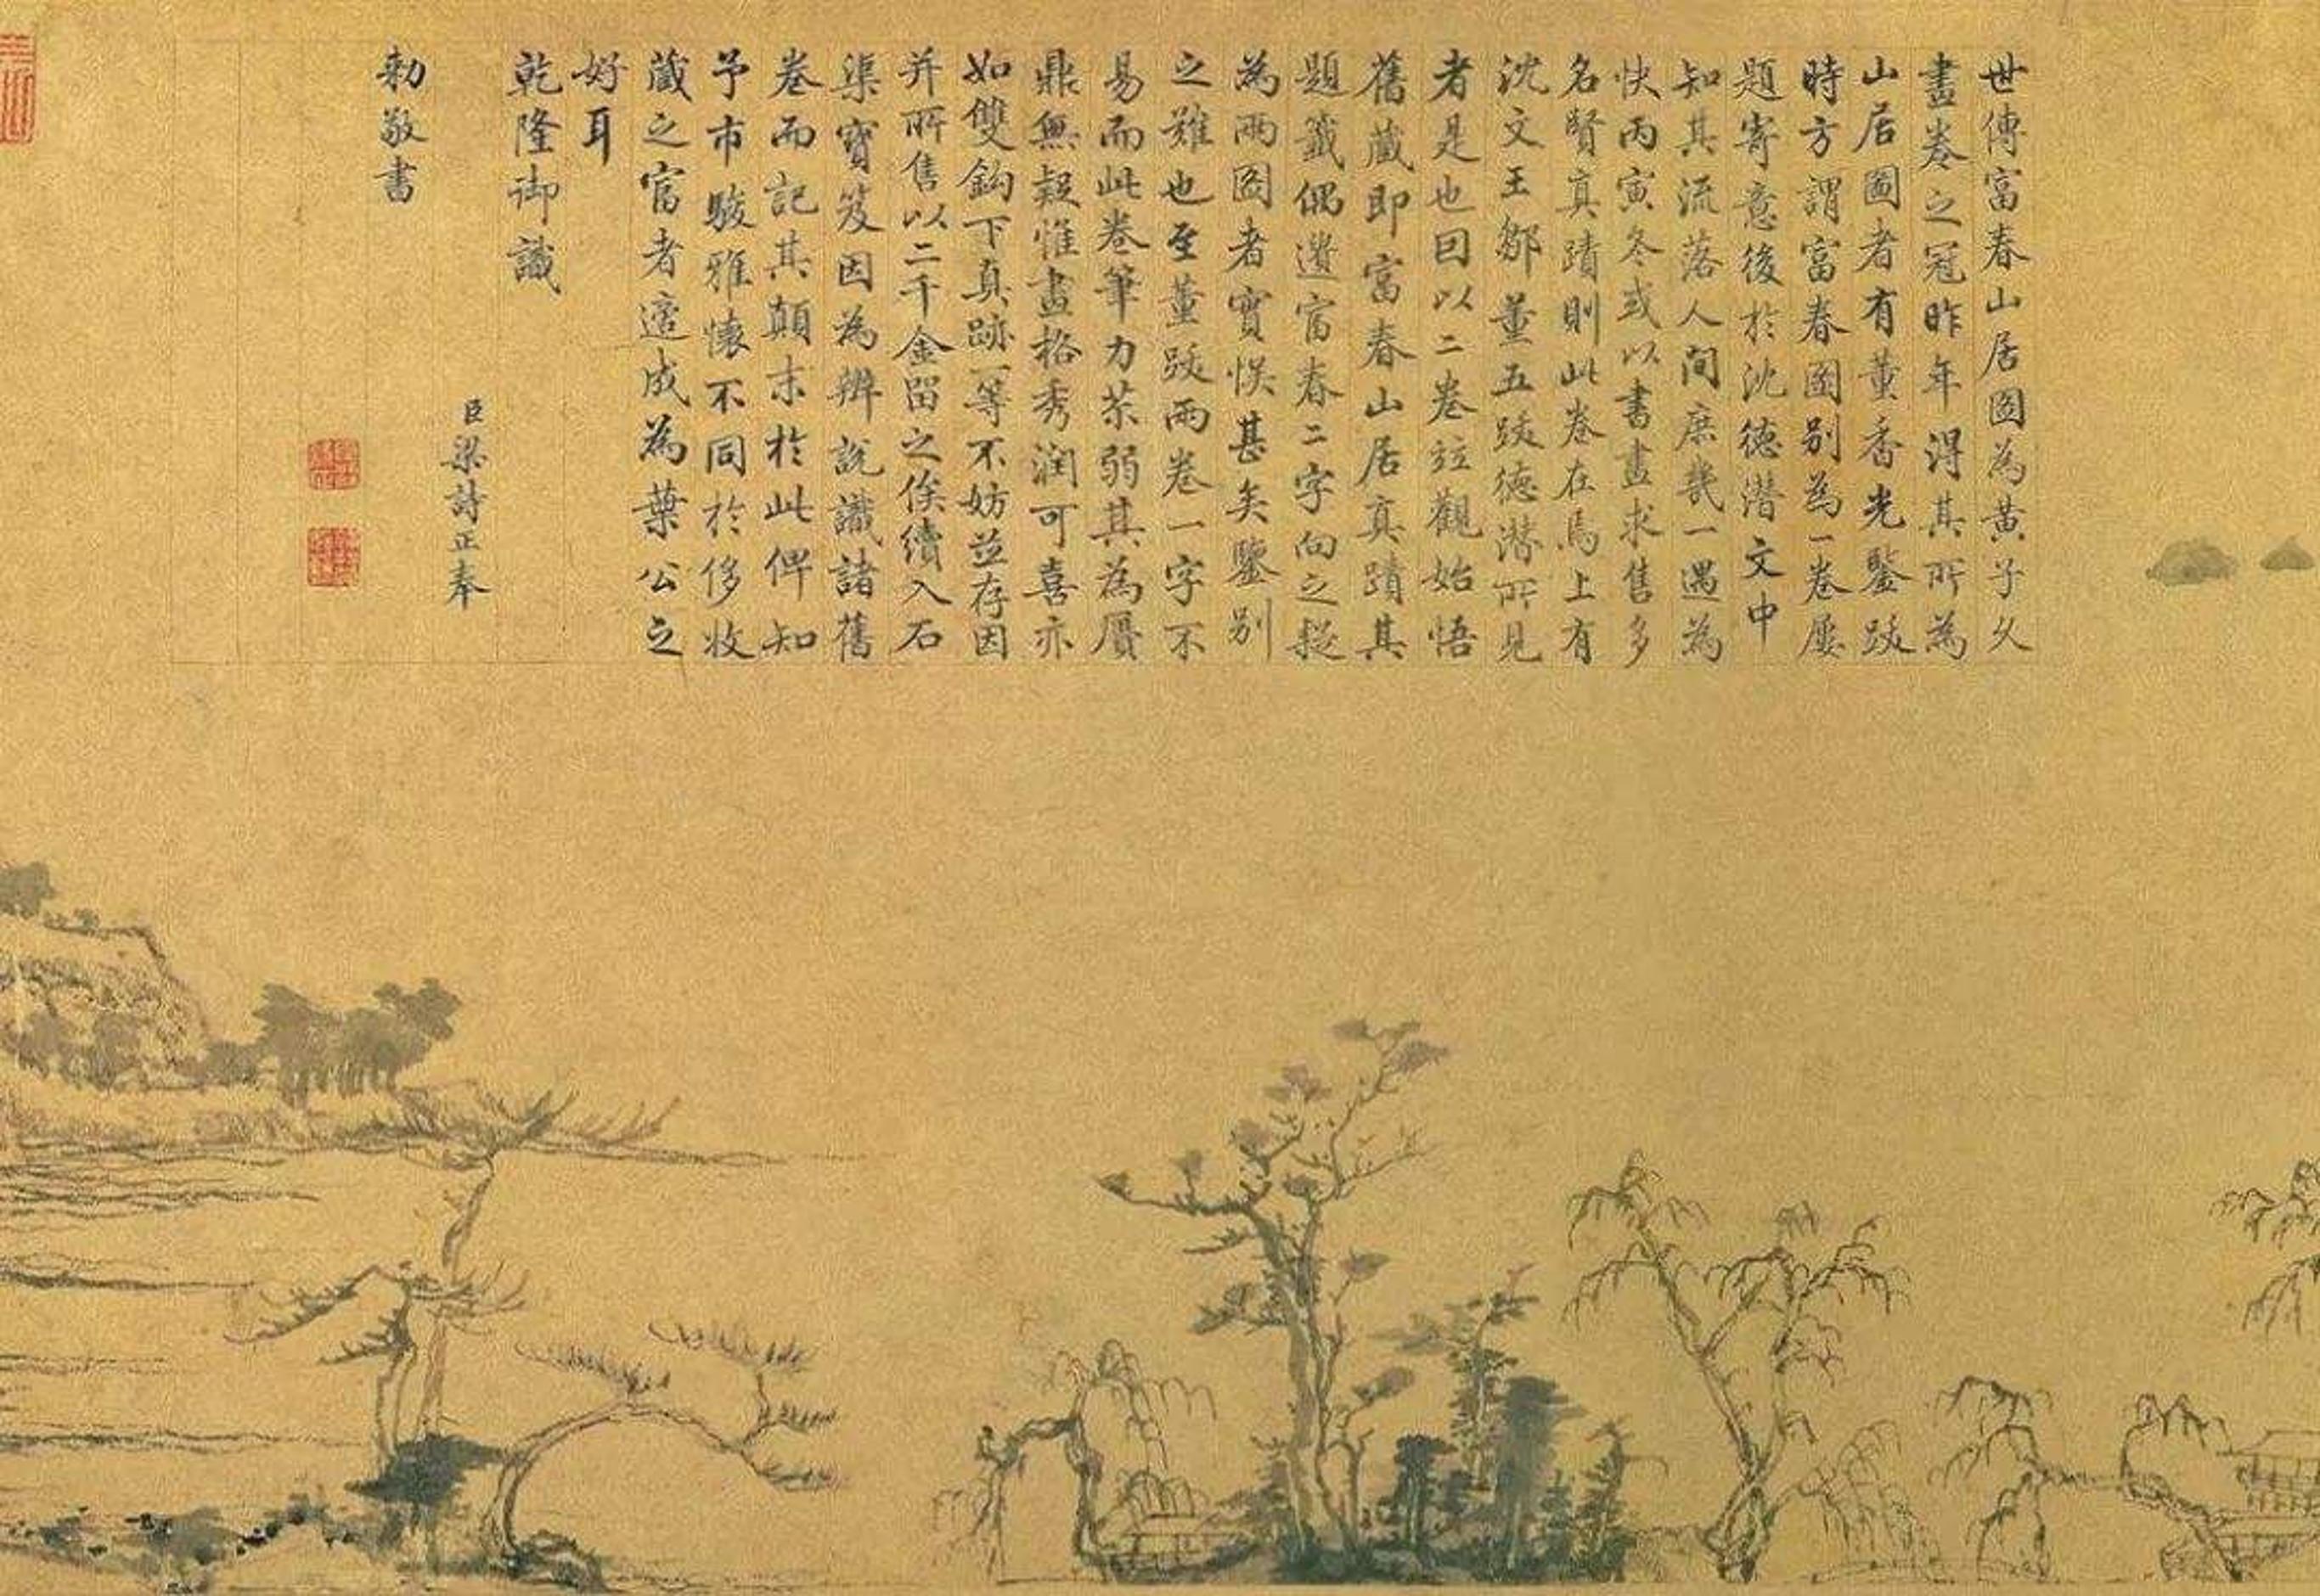 世傳富春山居圖為黃子久
畫卷之冠昨年得其所為
山居圖者有董香光鑒跋
時方謂富春圖別為一卷屢
題寄意後於沈德潛文中
知其流落人間庶幾一遇為
快丙寅冬或以書畫求售多
名賢真蹟則此卷在焉上有
沈文王鄒董五跋德潛所見
者是也因以二卷竝觀始悟
舊藏即富春山居真蹟其
題籤偶遺富春二字向之疑
為兩圖者實悞甚矣鑒別
之難也至董跋兩卷一字不
易而此卷筆力苶弱其為贋
鼎無疑惟畫格秀潤可喜亦
如雙鈎下真跡一等不妨並存因
并所售以二千金留之俟續入石
渠寶笈因為辨說識諸舊
卷而記其顛末於此俾知
予市駿雅懷不同於侈收
藏之富者適成為葉公之
好耳
乾隆御識
臣梁詩正奉
勅敬書